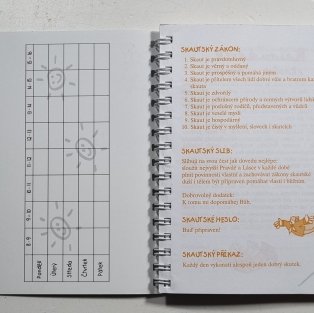 8-9
9-10
10-11
11-12
12-13
13-14
14-15
15-16
Pondělí
Úterý
Středa
Čtvrtek
Pátek
SKAUTSKÝ ZÁKON:
1. Skaut je pravdomluvný
2. Skaut je věrný a oddaný
3. Skaut je prospěšný a pomáhá jiným
4. Skaut je přítelem všech lidí dobré vůle a bratrem každého
skauta
5. Skaut je zdvořilý
6. Skaut je ochráncem přírody a cenných výtvorů lidských
7. Skaut je poslušný rodičů, představených a vůdců
8. Skaut je veselé mysli
9. Skaut je hospodárný
10. Skaut je čistý v myšlení, slovech i skutcích
SKAUTSKÝ SLIB:
Slibuji na svou čest jak dovedu nejlépe:
sloužit nejvyšší Pravdě a Lásce v každé době
plnit povinnosti vlastní a zachovávat zákony skautské
duší i tělem být připraven pomáhat vlasti i bližním.
Dobrovolný dodatek:
K tomu mi dopomáhej Bůh.
SKAUTSKÉ HESLO:
Buď připraven!
SKAUTSKÝ PŘÍKAZ:
Každý den vykonati alespoň jeden dobrý skutek.